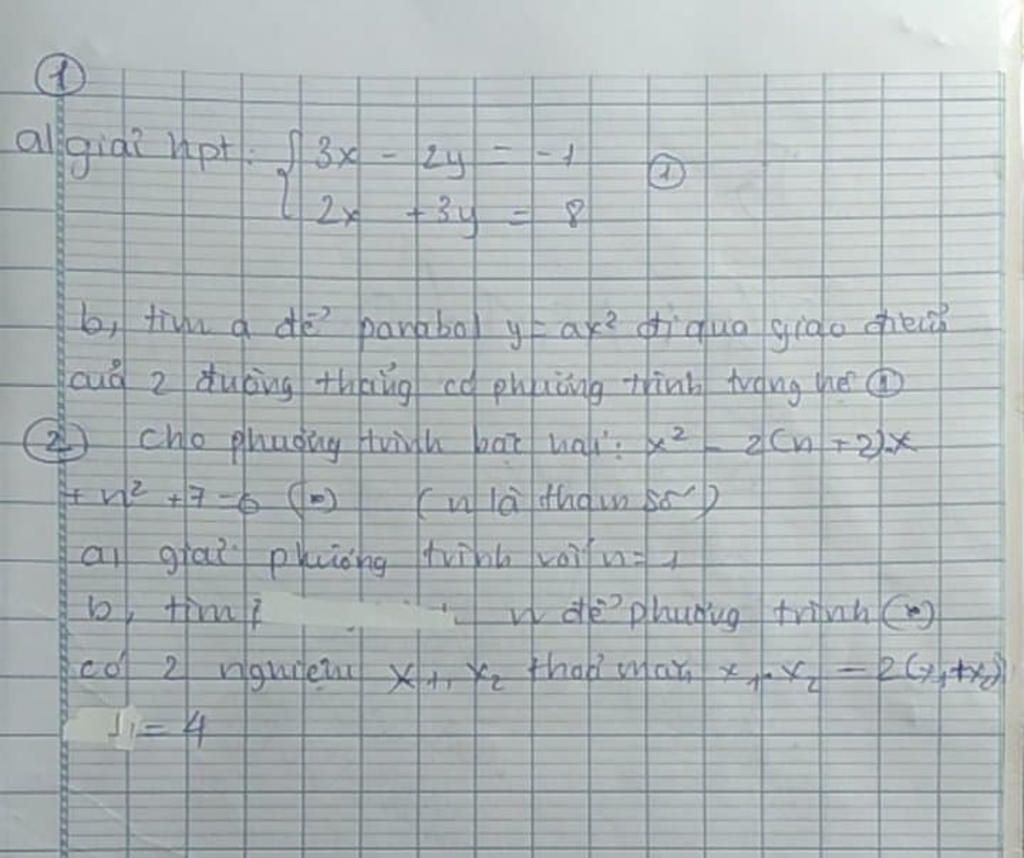 ①
a, giải hpt: { 3x - 2y = -1 ①
2x + 3y = 8
b, tìm a để parabol y = ax² đi qua giao điểm
của 2 đường thẳng có phương trình trong hệ ①
② Cho phương trình bậc hai: x² - 2(n + 2).x
+ n² + 7 = 0 (*) (n là tham số)
a, giải phương trình với n = 1
b, tìm n để phương trình (*)
có 2 nghiệm x₁, x₂ thoả mãn x₁.x₂ - 2(x₁+x₂)
= 4